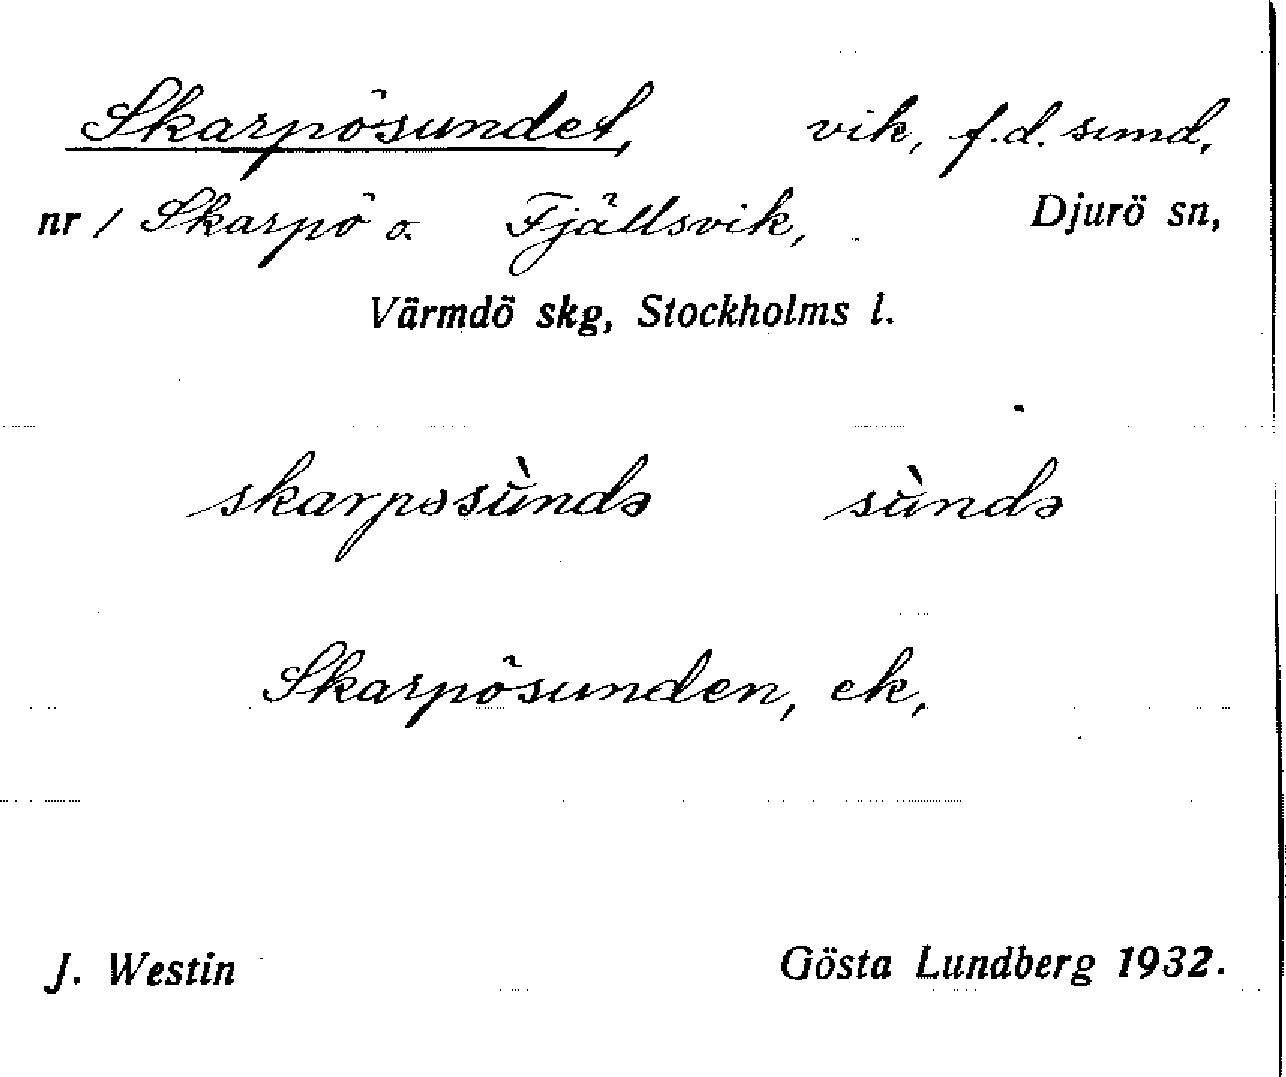 Skarpösundet, vik, f.d. sund,
nr 1 Skarpö o. Fjällsvik, Djurö sn,
Värmdö skg, Stockholms l.
skarpəsùndə sùndə
Skarpösunden, ek,
J. Westin Gösta Lundberg 1932.